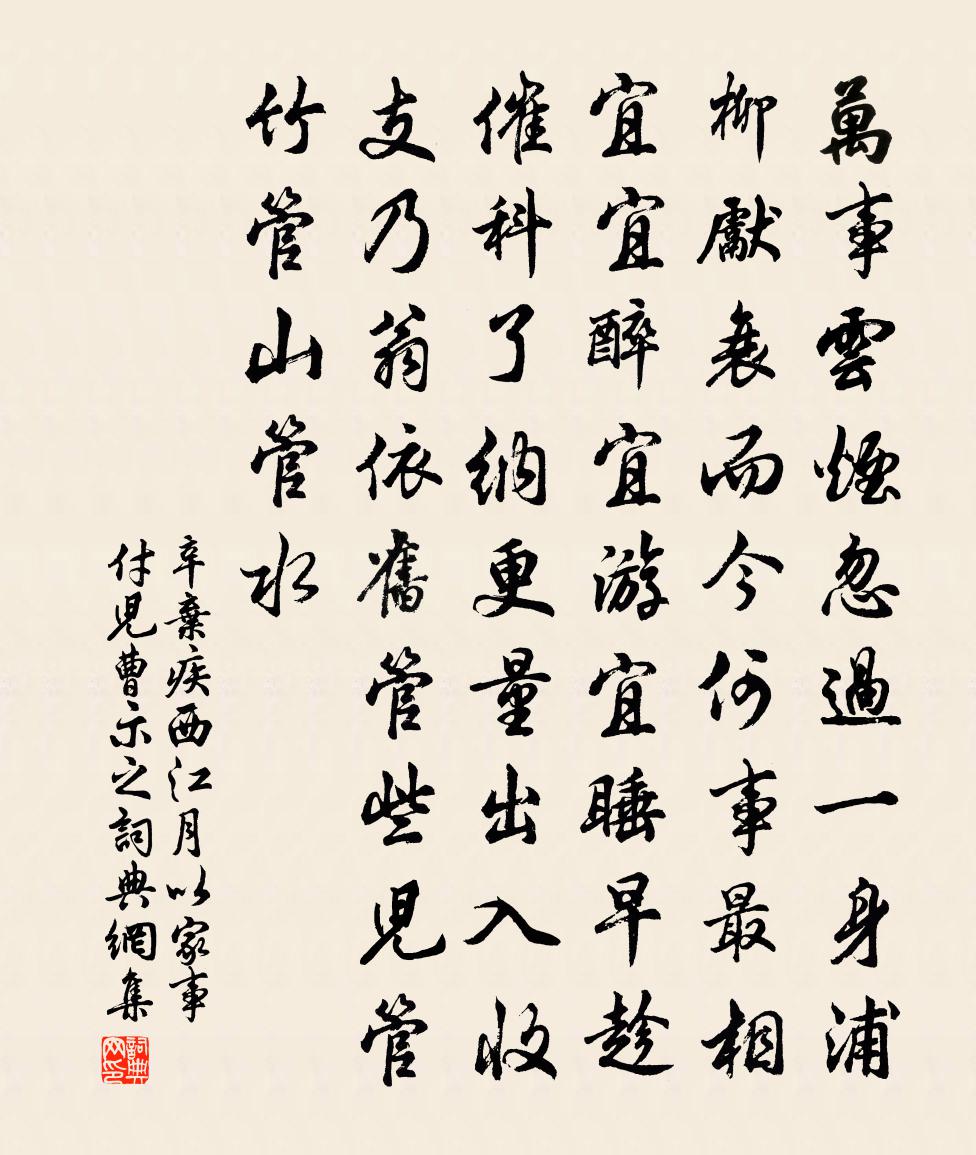 萬事雲煙忽過一身浦
柳獻衰而今何事最相
宜宜醉宜游宜睡早趁
催科了納更量出入收
支乃翁依舊管些兒管
竹管山管水
辛棄疾西江月以家事
付兒曹示之詞典網集
詞典网印